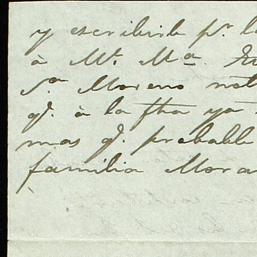 y escribirle pr. l
à Mr. Ma. Eu
Sra. Moreno not
qe. à la fha ya
mas qe. probable
familia Mora